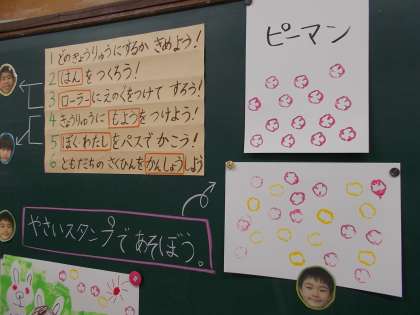 1 どのきょうりゅうにするか きめよう!
2 はんをつくろう!
3 ローラーにえのぐをつけて すろう!
4 きょうりゅうに もようをつけよう!
5 ぼく・わたしをパスでかこう!
6 ともだちの さくひんをかんしょうしよう
ピーマン
やさいスタンプであそぼう。